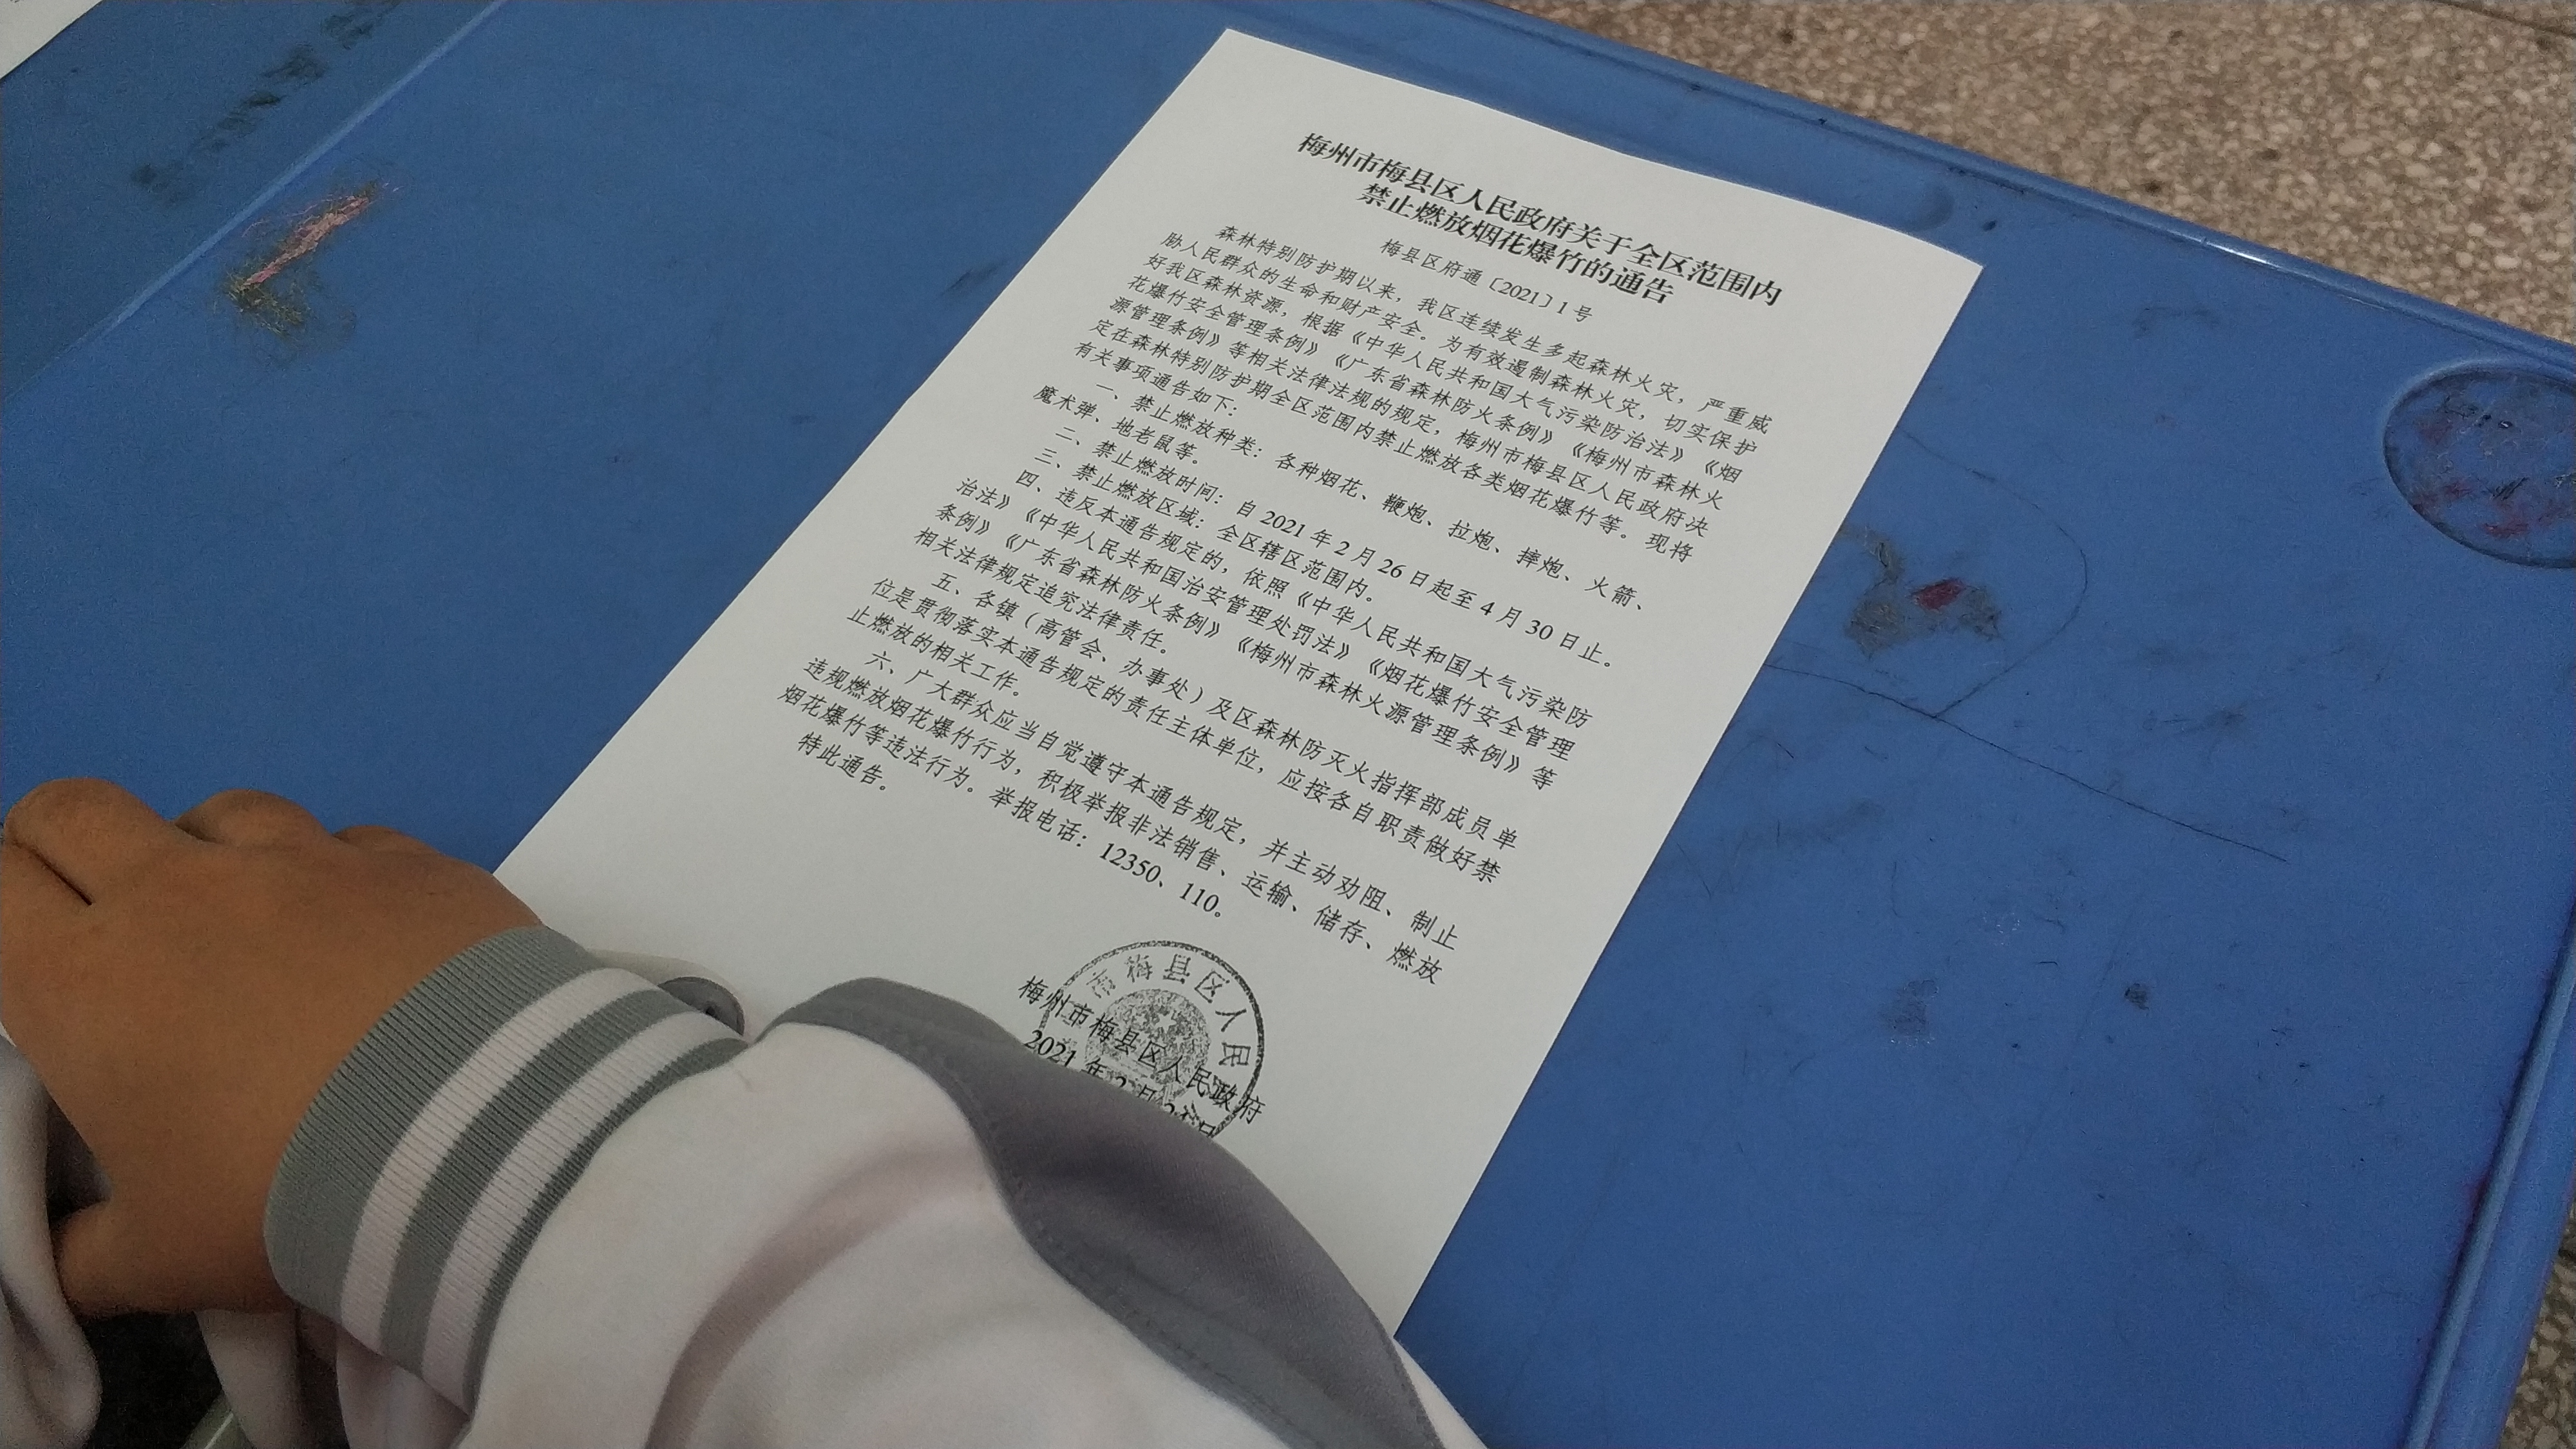 梅州市梅县区人民政府关于全区范围内
禁止燃放烟花爆竹的通告
梅县区府通〔2021〕1号
森林特别防护期以来，我区连续发生多起森林火灾，严重威
胁人民群众的生命和财产安全。为有效遏制森林火灾，切实保护
好我区森林资源，根据《中华人民共和国大气污染防治法》《烟
花爆竹安全管理条例》《广东省森林防火条例》《梅州市森林火
源管理条例》等相关法律法规的规定，梅州市梅县区人民政府决
定在森林特别防护期全区范围内禁止燃放各类烟花爆竹等。现将
有关事项通告如下：
一、禁止燃放种类：各种烟花、鞭炮、拉炮、摔炮、火箭、
魔术弹、地老鼠等。
二、禁止燃放时间：自2021年2月26日起至4月30日止。
三、禁止燃放区域：全区辖区范围内。
四、违反本通告规定的，依照《中华人民共和国大气污染防
治法》《中华人民共和国治安管理处罚法》《烟花爆竹安全管理
条例》《广东省森林防火条例》《梅州市森林火源管理条例》等
相关法律规定追究法律责任。
五、各镇（高管会、办事处）及区森林防灭火指挥部成员单
位是贯彻落实本通告规定的责任主体单位，应按各自职责做好禁
止燃放的相关工作。
六、广大群众应当自觉遵守本通告规定，并主动劝阻、制止
违规燃放烟花爆竹行为，积极举报非法销售、运输、储存、燃放
烟花爆竹等违法行为。举报电话：12350、110。
特此通告。
市梅县区人民
梅州市梅县区人民政府
2021年2月